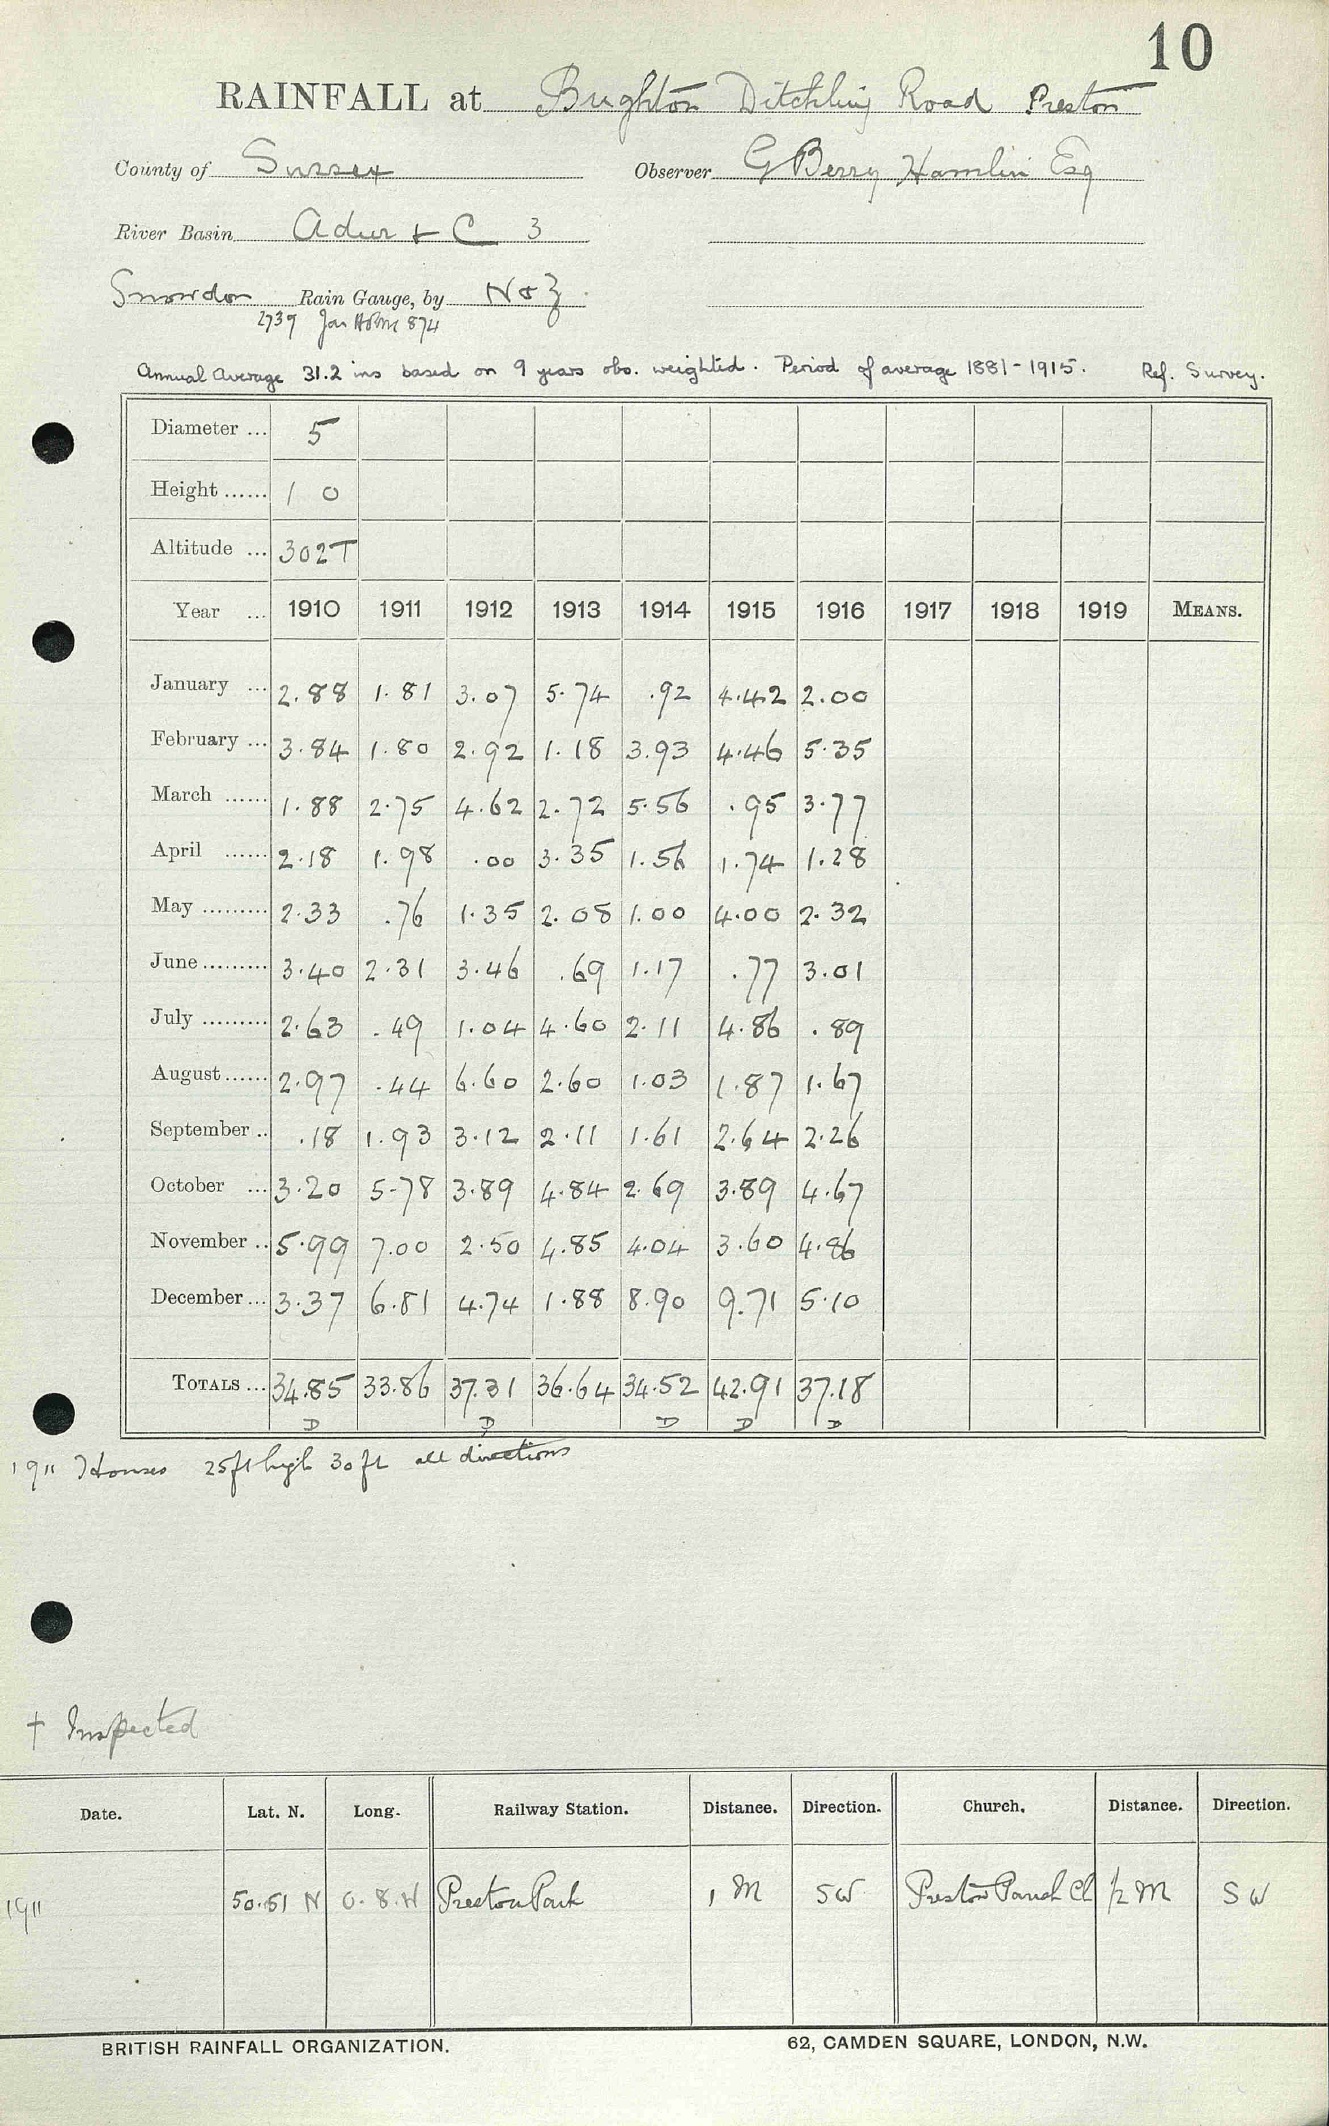 10
RAINFALL at Brighton Ditchling Road Preston
County of Sussex Observer G Berry Hamlin Esq
River Basin Adur & C 3
Snowdon Rain Gauge, by N & Z
2739
Annual Average 31.2 ins based on 9 years obs. weighted. Period of average 1881-1915. Ref. Survey.
Diameter ... 5
Height ...... 1 0
Altitude ... 302T
Year ... 1910 1911 1912 1913 1914 1915 1916 1917 1918 1919 MEANS.
January ... 2.88 1.81 3.07 5.74 .92 4.42 2.00
February ... 3.84 1.80 2.92 1.18 3.93 4.46 5.35
March ...... 1.88 2.75 4.62 2.72 5.56 .95 3.77
April ...... 2.18 1.98 .00 3.35 1.56 1.74 1.28
May ......... 2.33 .76 1.35 2.08 1.00 4.00 2.32
June ......... 3.40 2.31 3.46 .69 1.17 .77 3.01
July ......... 2.63 .49 1.04 4.60 2.11 4.86 .89
August ...... 2.97 .44 6.60 2.60 1.03 1.87 1.67
September .. .18 1.93 3.12 2.11 1.61 2.64 2.26
October ... 3.20 5.78 3.89 4.84 2.69 3.89 4.67
November .. 5.99 7.00 2.50 4.85 4.04 3.60 4.86
December ... 3.37 6.81 4.74 1.88 8.90 9.71 5.10
TOTALS ... 34.85 33.86 37.31 36.64 34.52 42.91 37.18
D D D D D
1911 Houses 25ft high 30ft all directions
† Inspected
Date. Lat. N. Long. Railway Station. Distance. Direction. Church. Distance. Direction.
1911 50.51 N 0.8.W Preston Park 1 M SW Preston Parish Ch 1/2 M S W
BRITISH RAINFALL ORGANIZATION. 62, CAMDEN SQUARE, LONDON, N.W.